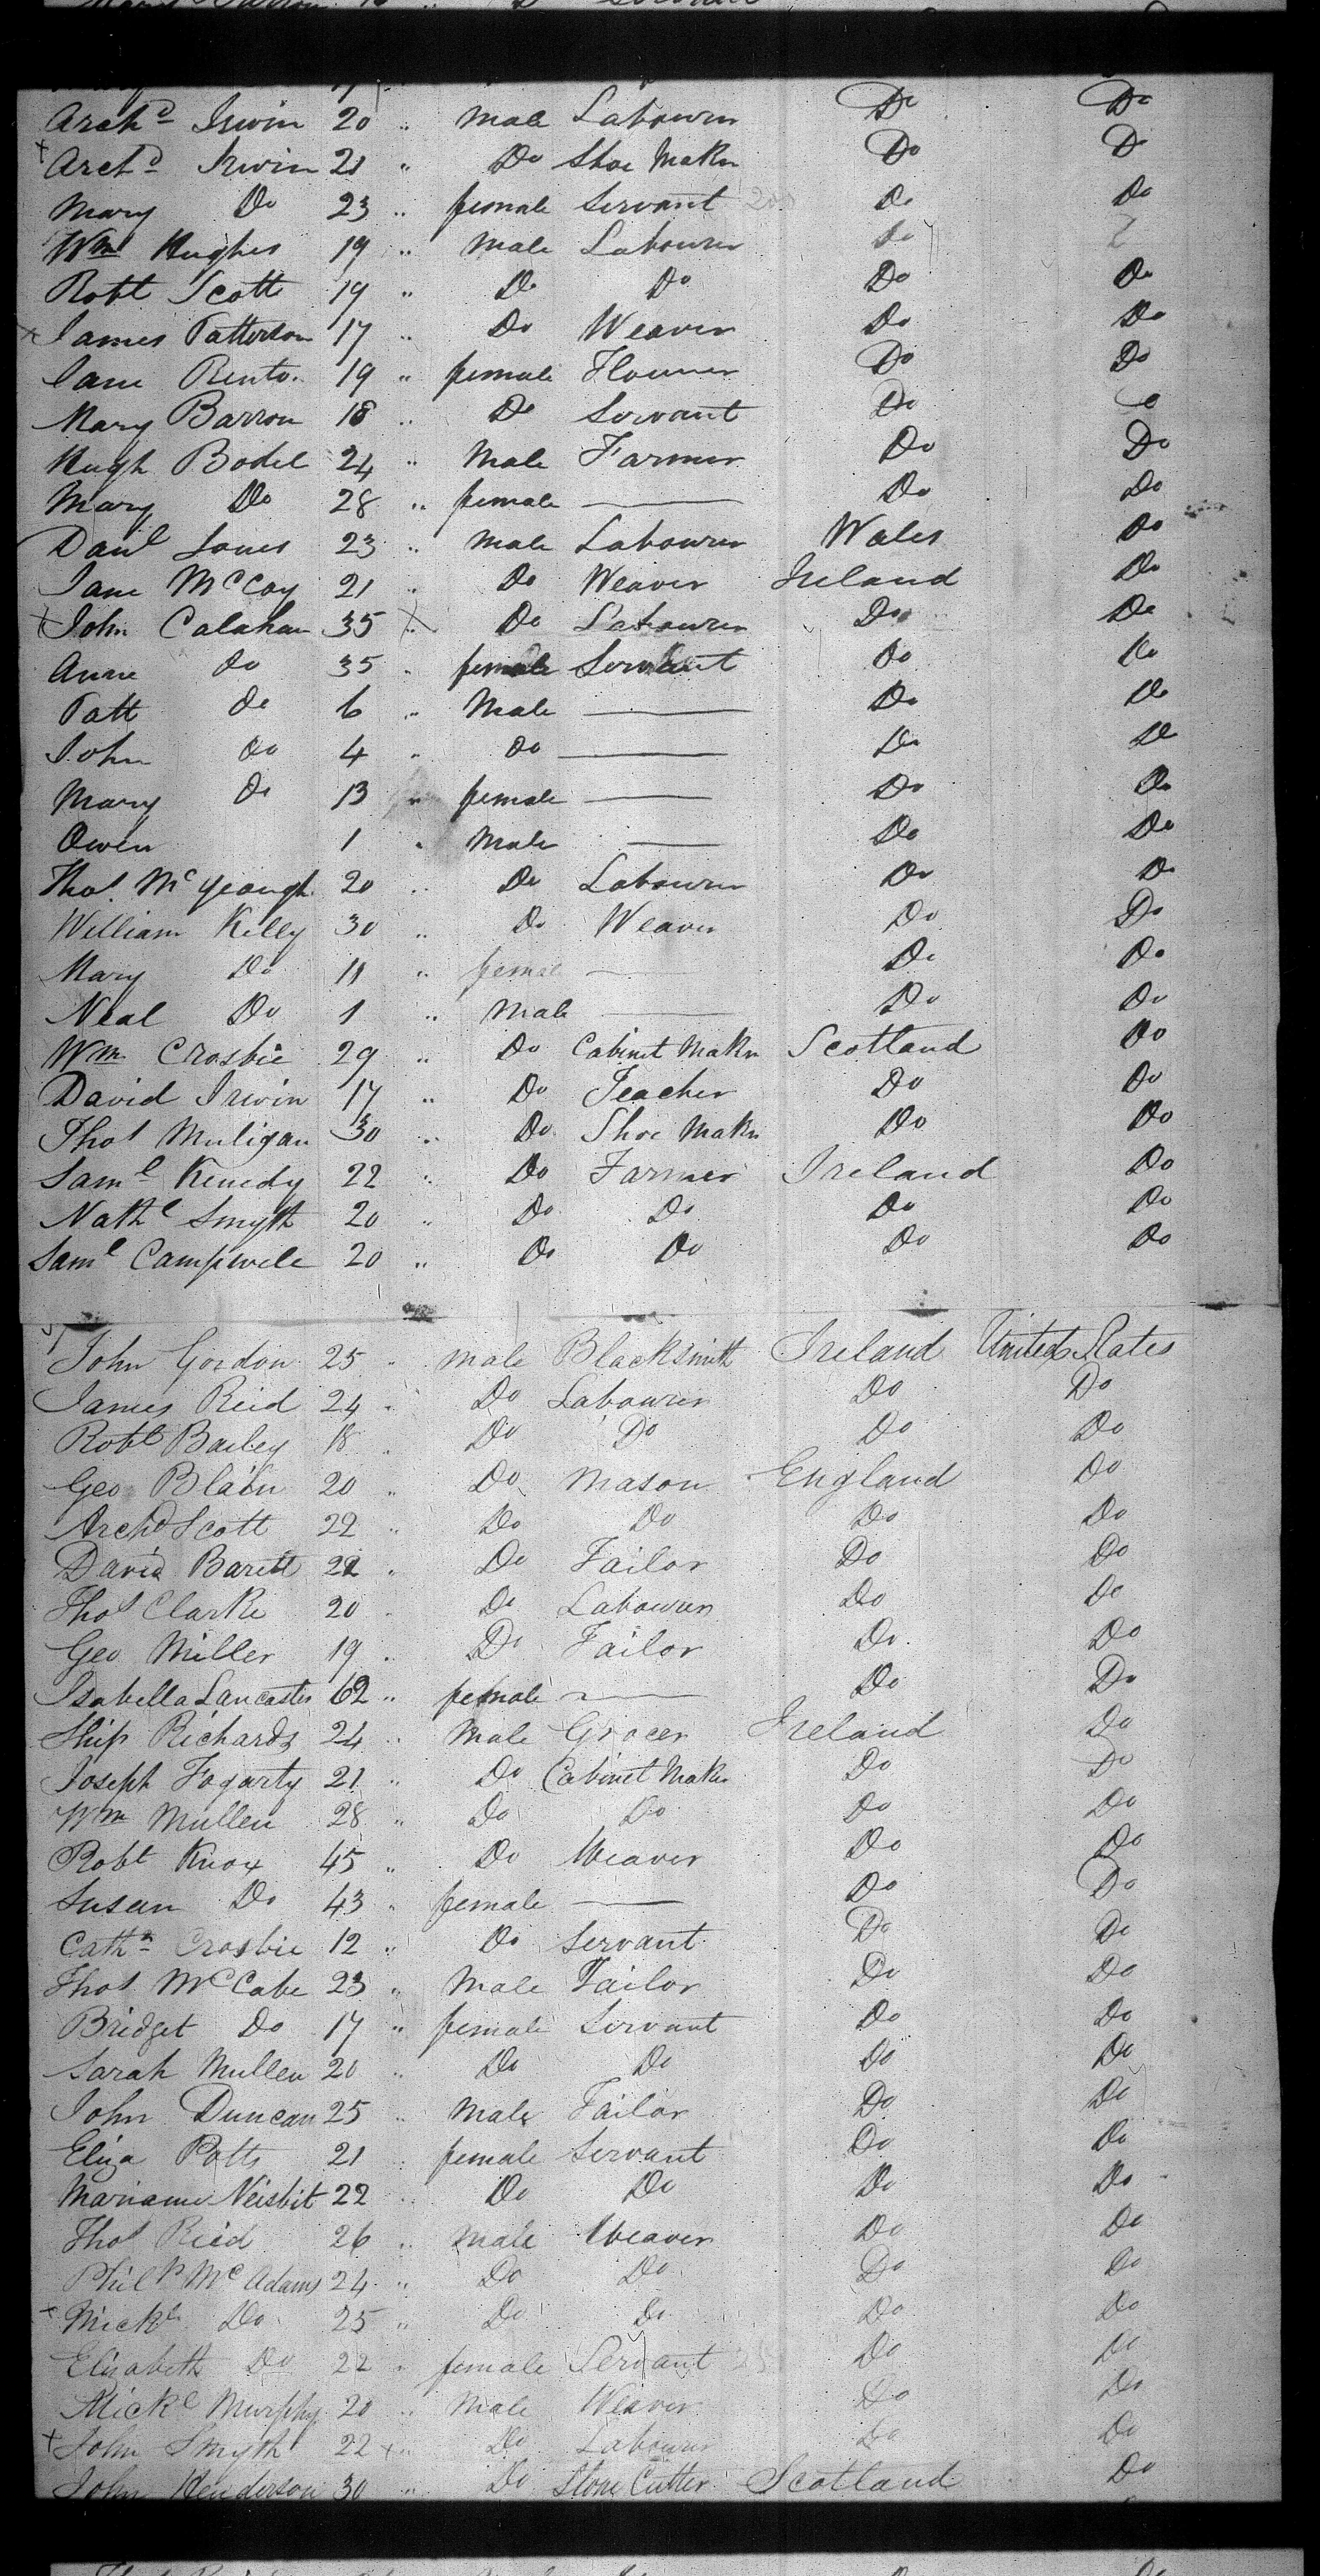 Archd Irwin 20 " male Labourer Do Do
+ Archd Irwin 21 " Do Shoe Maker Do Do
Mary Do 23 " female Servant Do Do
Wm Hughes 19 " Male Labourer Do
Robt Scott 19 " Do Do Do Do
x James Patterson 17 " Do Weaver Do Do
Jane 19 " female Do Do
Mary Barron 18 " Do Servant Do
Hugh Bodel 24 " Male Farmer Do Do
Mary Do 28 " female — Do Do
Danl Jones 23 " Male Labourer Wales Do
Jane McCoy 21 " Do Weaver Ireland Do
x John Calahan 35 x Do Labourer Do Do
Anne do 35 " female Servant Do Do
Patt do 6 " Male — Do Do
John do 4 " do — Do Do
Mary do 13 " female — Do Do
Owen 1 " Male — Do Do
Thos. McGeough 20 " Do Labourer Do Do
William Kelly 30 " Do Weaver Do Do
Mary Do 11 " female — Do Do
Neal Do 1 " Male — Do Do
Wm Crosbie 29 " Do Cabinet Maker Scotland Do
David Irwin 17 " Do Teacher Do Do
Thos Muligan 30 " Do Shoe Maker Do Do
Saml Kenedy 22 " Do Farmer Ireland Do
Nathl Smyth 20 " Do Do Do Do
Saml Campwele 20 " Do Do Do Do
John Gordon 25 " male Blacksmith Ireland United States
James Reid 24 " Do Labourer Do Do
Robt Bailey 18 " Do Do Do Do
Geo 20 " Do Mason England Do
Archd Scott 22 " Do Do Do Do
David Barett 22 " Do Tailor Do Do
Thos Clarke 20 " Do Labourer Do Do
Geo Miller 19 " Do Tailor Do Do
Isabella Lancaster 62 " female — Do Do
Richards 24 " Male Grocer Ireland Do
Joseph Fogarty 21 " Do Cabinet Maker Do Do
Wm Mullen 28 " Do Do Do Do
Robt Knox 45 " Do Weaver Do Do
Susan Do 43 " female — Do Do
Cathn Crosbie 12 " Do Servant Do Do
Thos McCabe 23 " Male Tailor Do Do
Bridget Do 17 " female Servant Do Do
Sarah Mullen 20 " Do Do Do Do
John Duncan 25 " Male Tailor Do Do
Eliza Potts 21 " female Servant Do Do
Mariann Neisbit 22 " Do Do Do Do
Thos Ried 26 " male Weaver Do Do
Philp McAdams 24 " Do Do Do Do
+ Mickl Do 25 " Do Do Do Do
Elizabeth Do 22 " female Servant Do Do
Mickl Murphy 20 " Male Weaver Do Do
+ John Smyth 22 + " Do Labourer Do Do
John Henderson 30 " Do Stone Cutter Scotland Do